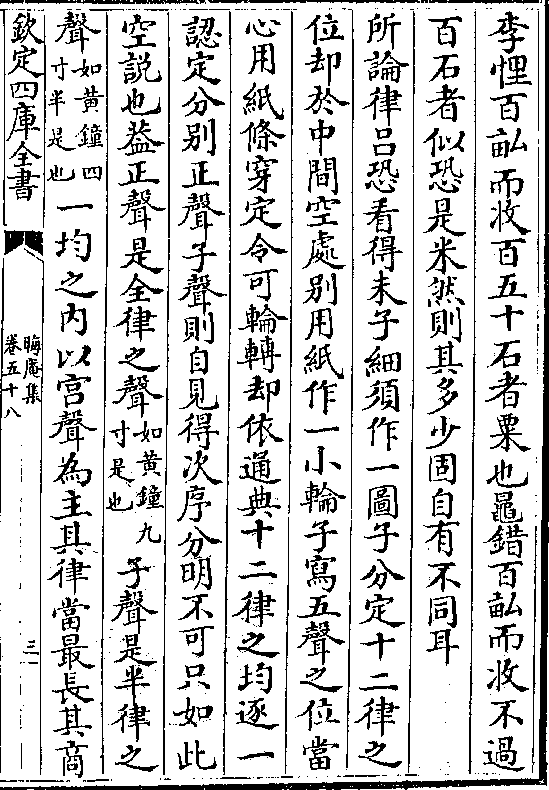 李悝百畝而收百五十石者粟也鼂錯百畝而收不過
百石者似恐是米然則其多少固自有不同耳
所論律吕恐看得未子細須作一圖子分定十二律之
位却於中間空處别用紙作一小輪子寫五聲之位當
心用紙條穿定令可輪轉却依通典十二律之均逐一
認定分别正聲子聲則自見得次序分明不可只如此
空説也葢正聲是全律之聲如黄鐘九寸是也子聲是半律之
聲如黄鐘四寸半是也一均之内以宫聲為主其律當最長其商
欽定四庫全書
晦庵集
卷五十八